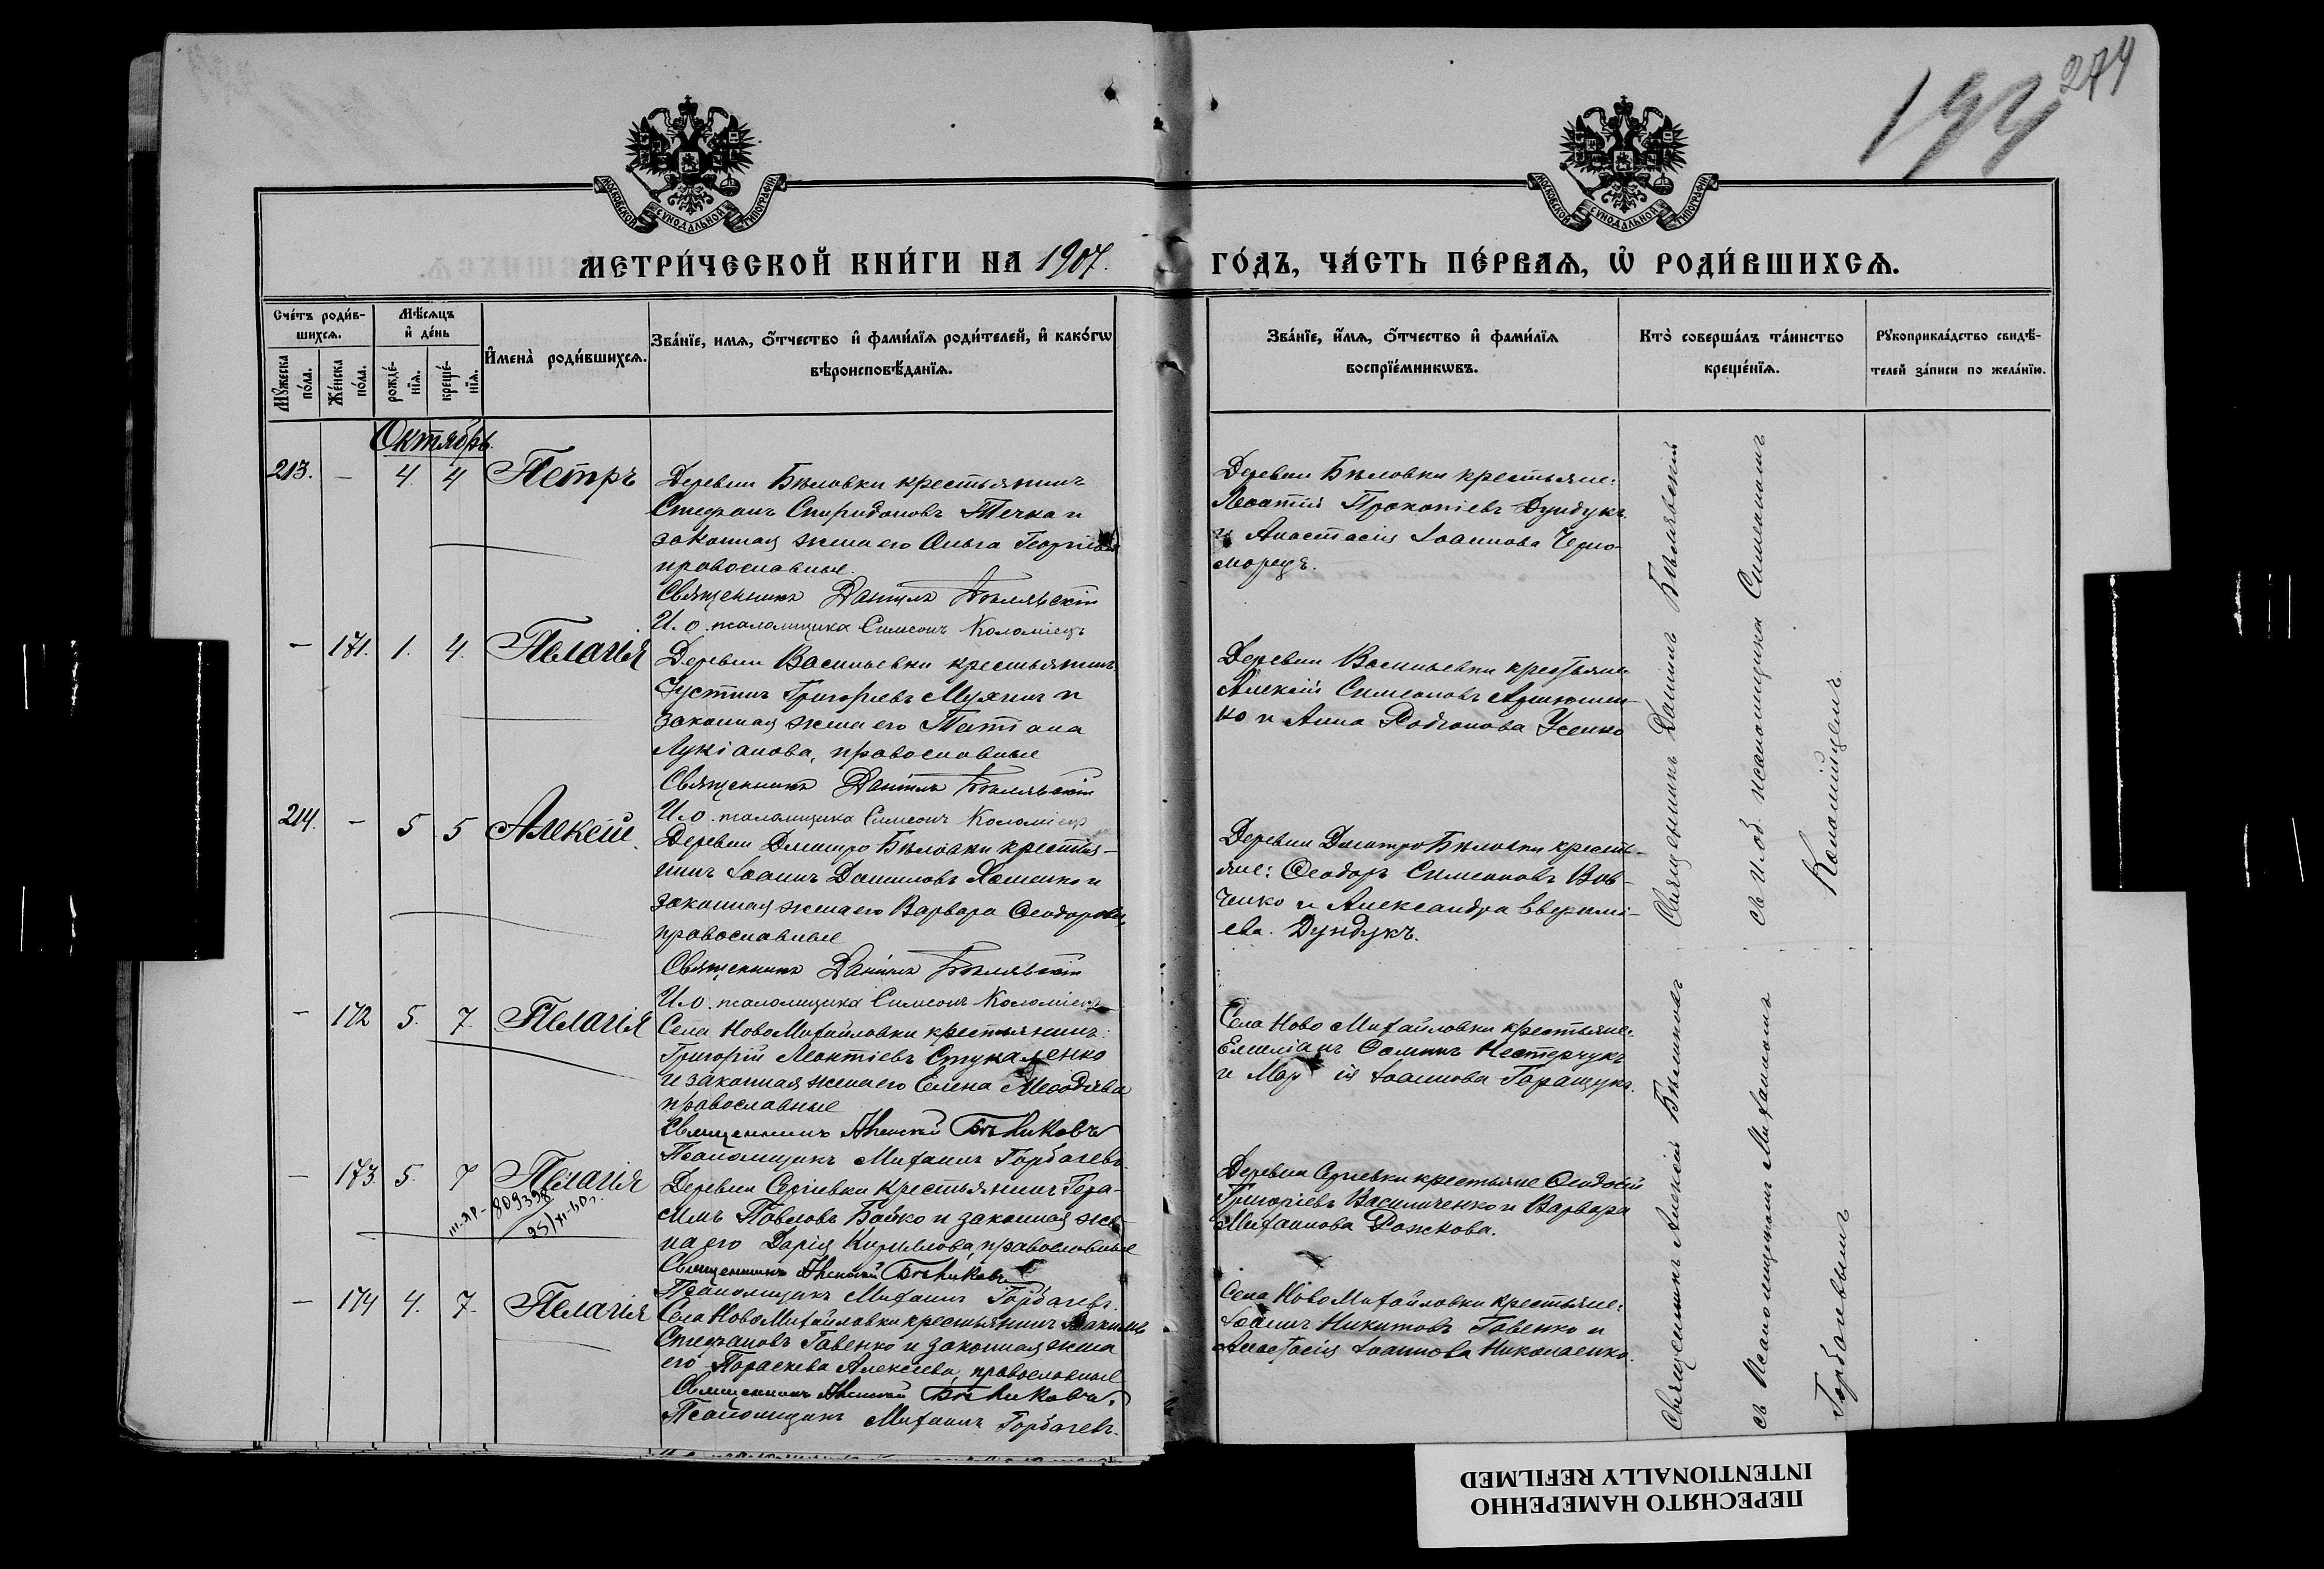 274
194
МОСКОВСКОЙ СѴНОДАЛЬНОЙ ТИПОГРАФІИ
МОСКОВСКОЙ СѴНОДАЛЬНОЙ ТИПОГРАФІИ
МЕТРИ́ЧЕСКОЙ КНИ́ГИ НА 1907.
ГО́ДЪ, ЧА́СТЬ ПЕ́РВАѦ, Ѡ҆ РОДИ́ВШИХСѦ.
Сче́тъ роди́в-
шихсѧ.
Мꙋ́жеска по́ла.
Же́нска по́ла.
Мѣ́сѧцъ
и҆ де́нь
рожде́-
нїѧ.
креще́-
нїѧ.
И҆мена̀ роди́вшихсѧ.
Зва́нїе, имѧ, ѻ҆́тчество и҆ фами́лїѧ роди́телей, и҆ како́гѡ
вѣроисповѣ́данїѧ.
Зва́нїе, и҆́мѧ, ѻ҆́тчество и҆ фами́лїѧ
воспрїе́мникѡвъ.
Кто̀ соверша́лъ та́инство
креще́нїѧ.
Рꙋкоприкла́дство свидѣ́-
телей за́писи по жела́нїю.
Октябрь.
213. - 4. 4 Петръ
Деревни Бѣловки крестьянинъ
Стефанъ Спиридоновъ Течка и
законная жена его Ольга Георгіева
православные.
Священникъ Даніилъ Бѣлявскій
И. о. псаломщика Симеонъ Коломіецъ
Деревни Бѣловки крестьяне:
Леонтій Прокопіевъ Дундукъ
и Анастасія Іоаннова Черно-
морецъ.
- 171. 1. 4. Пелагія
Деревни Васильевки крестьянинъ
Іустинъ Григорьевъ Мухинъ и
законная жена его Татіана
Лукіанова, православные
Священникъ Даніилъ Бѣлявскій
И. о. псаломщика Симеонъ Коломіецъ
Деревни Васильевки крестьяне
Алексій Симеоновъ
ко и Анна Родіонова Усенко
214. - 5 5 Алексій.
Деревни Дмитро Бѣловки крестья-
нинъ Іоаннъ Даниловъ Хоменко и
законная жена его Варвара Ѳеодорова,
православные
Священникъ Даніилъ Бѣлявскій
И. о. псаломщика Симеонъ Коломіецъ
Деревни Дмитро Бѣловки кресть-
яне: Ѳеодоръ Симеоновъ Вов-
ченко и Александра Евѳимі-
ева. Дундукъ.
Священникъ Даніилъ Бѣлявскій
съ и. об. псаломщика Симеономъ
Коломійцемъ
- 172 5. 7. Пелагія
Села НовоМихайловки крестьянинъ:
Григорій Леонтіевъ Стукаленко
и законная жена его Елена Меѳодіева
православные
Священникъ Алексій Бѣликовъ
Псаломщикъ Михаилъ Горбачевъ.
Села Ново Михайловки крестьяне:
Емиліанъ Ѳоминъ Нестерчукъ
и Марія Іоаннова Таращукъ.
- 173. 5. 7 Пелагія
III-ЯР- 809398
25/XI-60г.
Деревни Сергіевки крестьянинъ Гера-
симъ Павловъ Бойко и законная же-
на его Дарія Кириллова, православные
Священникъ Алексій Бѣликовъ
Псаломщикъ Михаилъ Горбачевъ.
Деревни Сергіевки крестьяне Ѳеодосій
Григоріевъ Василиченко и Варвара
Михаилова Рожкова.
- 174 4. 7. Пелагія
Села НовоМихайловки крестьянинъ
Стефановъ Гавенко и законная жена
его Параскева Алексіева, православные
Священникъ Алексій Бѣликовъ.
Псаломщикъ Михаилъ Горбачевъ.
Села НовоМихайловки крестьяне:
Іоаннъ Никитовъ Гавенко и
Анастасія Іоаннова Николаенко.
Священникъ Алексій Бѣликовъ
съ Псаломщикомъ Михаиломъ
Горбачевымъ
ПЕРЕСНЯТО НАМЕРЕННО
INTENTIONALLY REFILMED